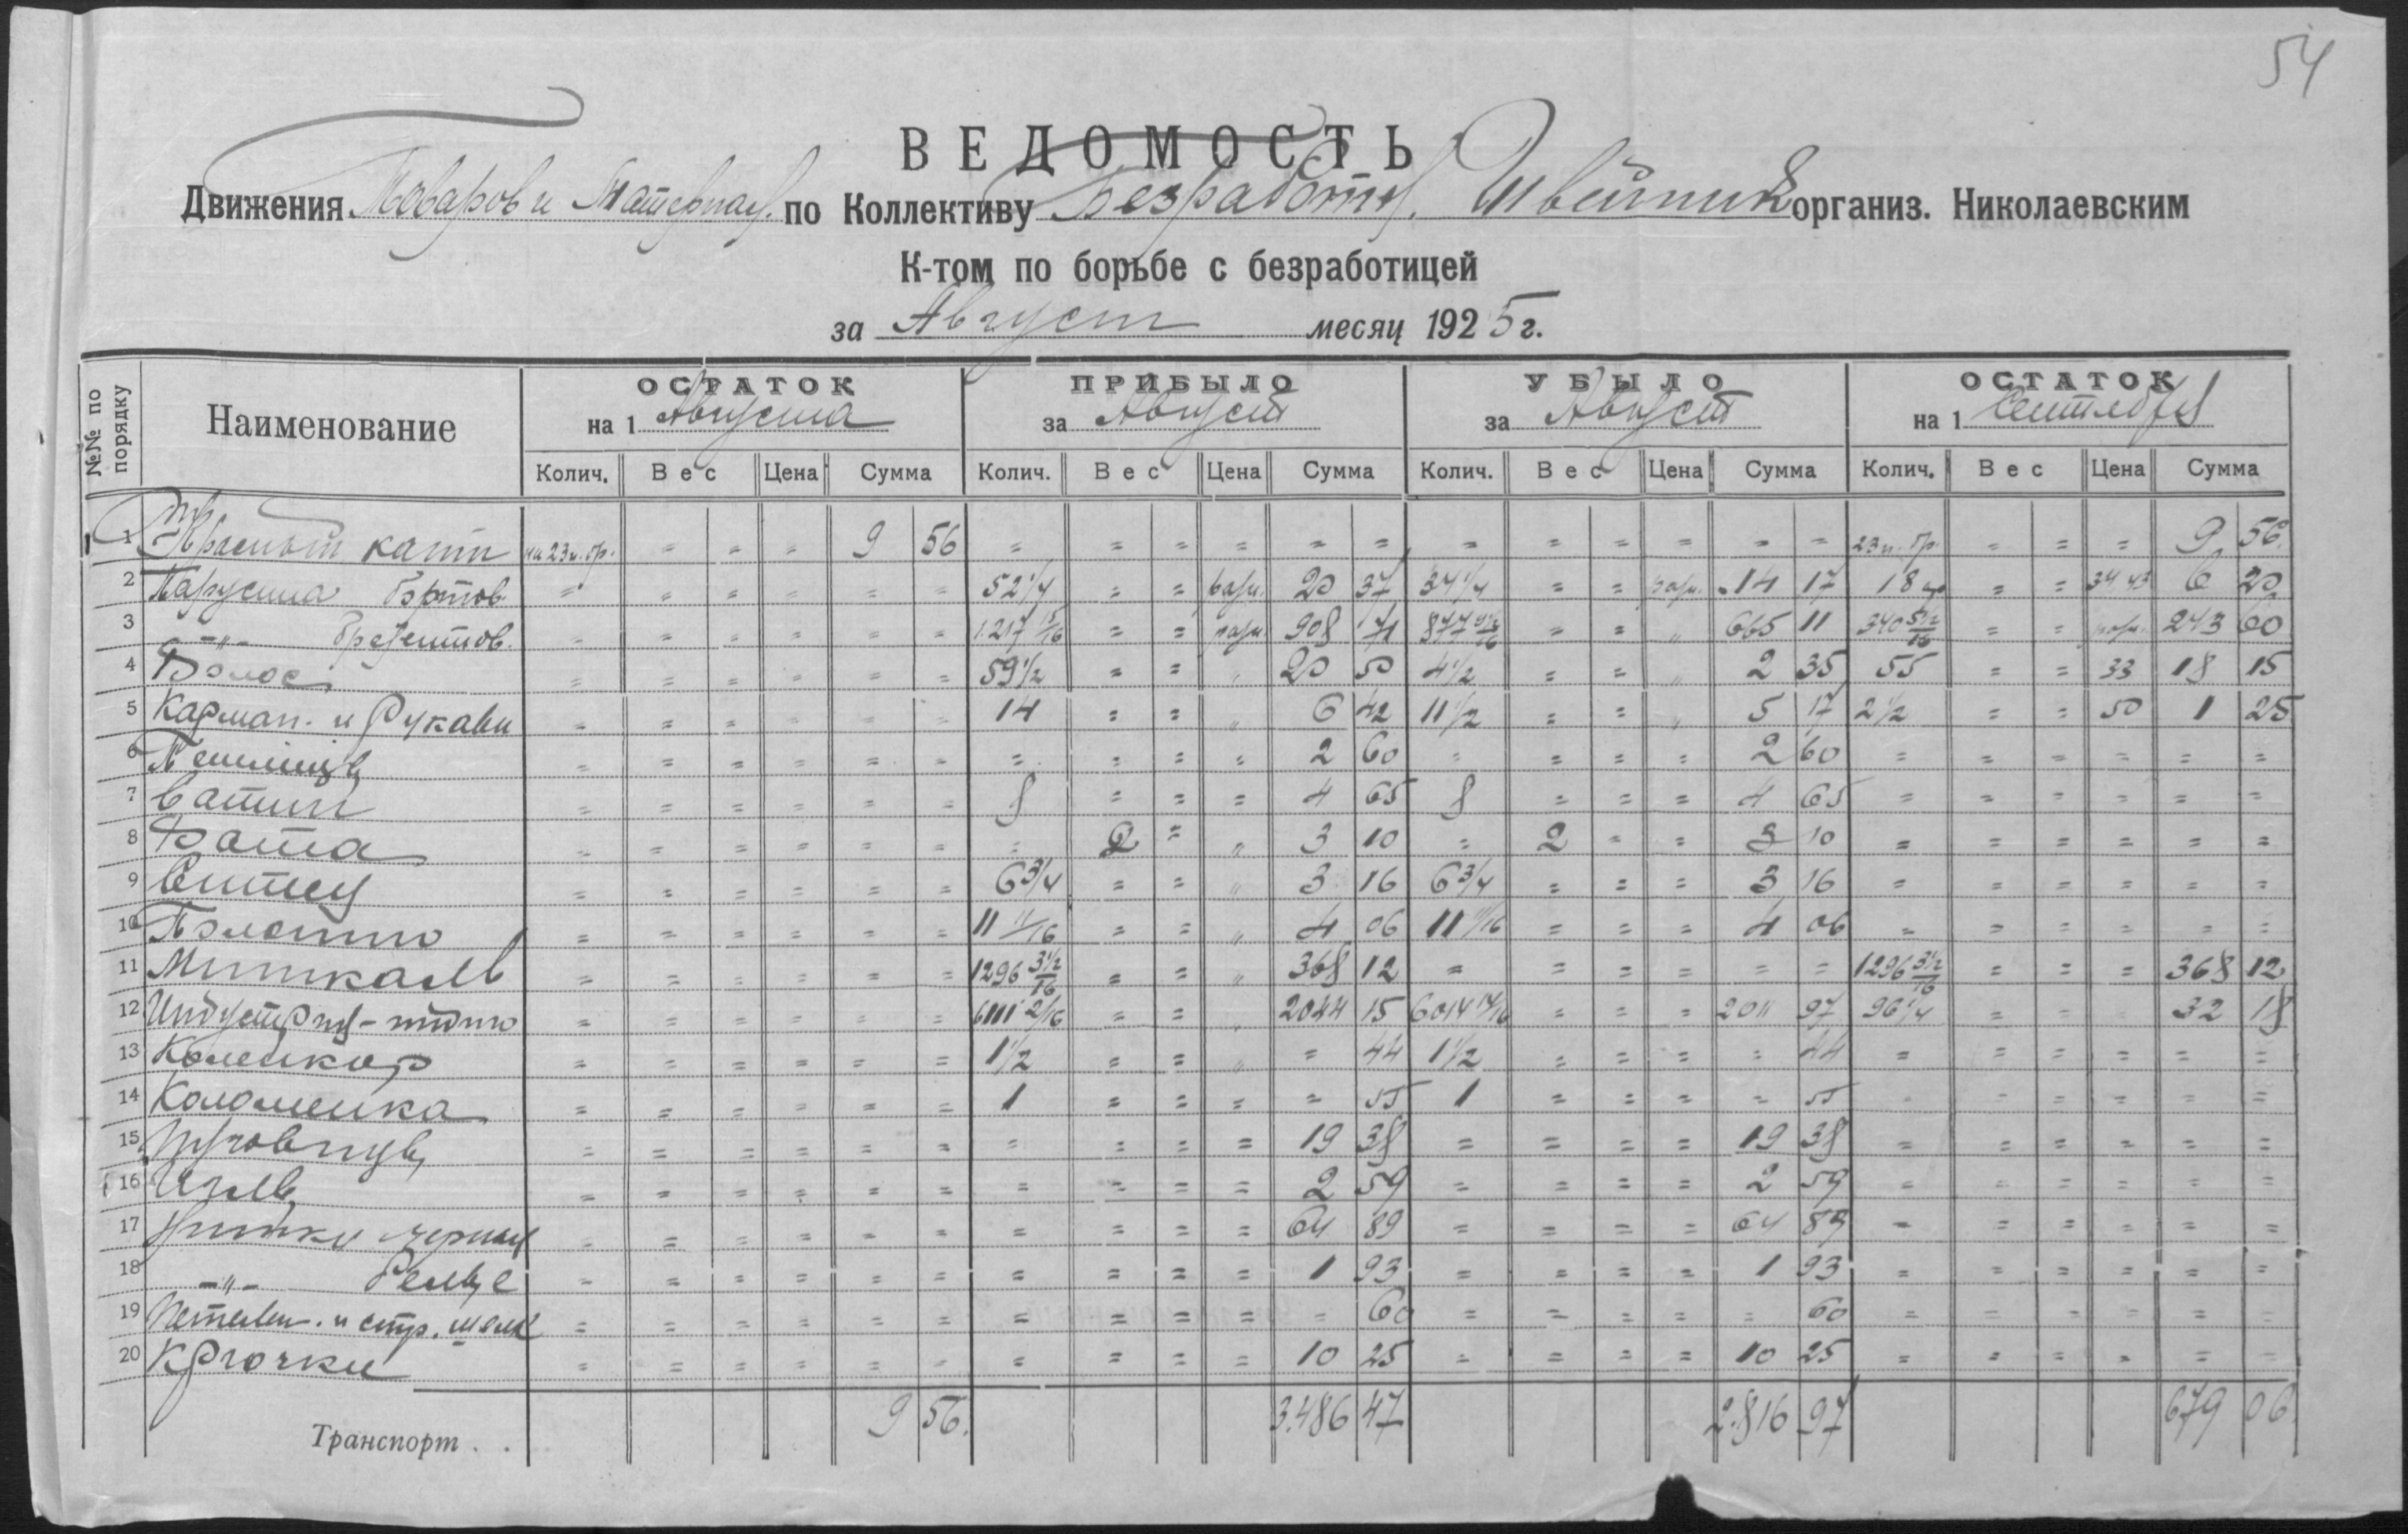 54
ВЕДОМОСТЬ
Движения Товаров и Матерьял. по Коллективу Безработн. Швейник организ. Николаевским
К-том по борьбе с безработицей
за Август месяц 1925 г.
№№ по порядку Наименование ОСТАТОК на 1 Августа ПРИБЫЛО за Август УБЫЛО за Август ОСТАТОК на 1 Сентября
Колич. Вес Цена Сумма Колич. Вес Цена Сумма Колич. Вес Цена Сумма Колич. Вес Цена Сумма
1 = = = 9 56 = = = = = = = = = = = = 23 п. гр. = = = 9 56
2 Парусина бортов. = = = = = = 52 1/4 = = разн. 20 37 34 1/4 = = разн. 14 17 18 = = 34 43 6 20
3 -"- брезентов. = = = = = = 1.217 15/16 = = разн. 908 71 877 9 1/2/16 = = " 665 11 340 5 1/2/16 = = разн. 243 60
4 Волос = = = = = = 59 1/2 = = " 20 50 4 1/2 = = " 2 35 55 = = 33 18 15
5 Карман. и Рукавн = = = = = = 14 = = " 6 42 11 1/2 = = " 5 17 2 1/2 = = 50 1 25
6 = = = = = = = = = " 2 60 = = = = 2 60 = = = = = =
7 Ватин = = = = = = 8 = = = 4 65 8 = = = 4 65 = = = = = =
8 Вата = = = = = = = 2 = " 3 10 = 2 = = 3 10 = = = = = =
9 Ситец = = = = = = 6 3/4 = = " 3 16 6 3/4 = = = 3 16 = = = = = =
10 Полотно = = = = = = 11 11/16 = = " 4 06 11 11/16 = = = 4 06 = = = = = =
11 Миткаль = = = = = = 1296 3 1/2/16 = = " 368 12 = = = = = = 1296 3 1/2/16 = = = 368 12
12 Индустрия = = = = = = 6111 2/16 = = " 2044 15 6014 14/16 = = = 2011 97 96 1/4 = = = 32 18
13 Коленкор = = = = = = 1 1/2 = = " = 44 1 1/2 = = = = 44 = = = = = =
14 Коломенка = = = = = = 1 = = = = 55 1 = = = = 55 = = = = = =
15 Пуговицы = = = = = = = = = = 19 38 = = = = 19 38 = = = = = =
16 Иглы = = = = = = = = = = 2 59 = = = = 2 59 = = = = = =
17 Нитки черныя = = = = = = = = = = 64 89 = = = = 64 89 = = = = = =
18 -"- белые = = = = = = = = = = 1 93 = = = = 1 93 = = = = = =
19 Петельн. и стр. шелк = = = = = = = = = = = 60 = = = = = 60 = = = = = =
20 Крючки = = = = = = = = = = 10 25 = = = = 10 25 = = = = = =
Транспорт . . 9 56. 3.486 47 2.816 97 679 06.